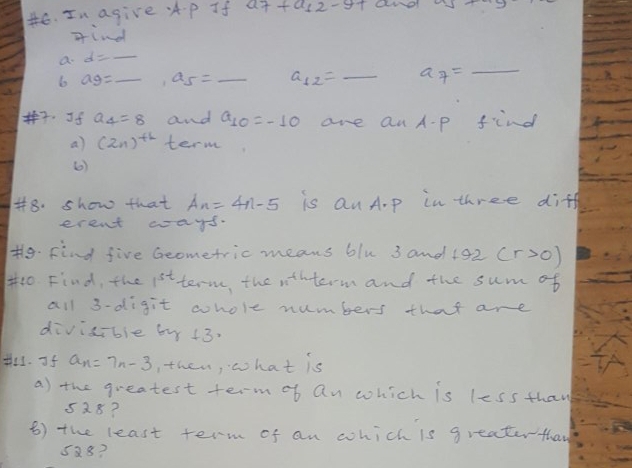 #6. In a give A.P If a7 + a12 = 94 and
Find
a. d = —
b a9 = — , a5 = — a12 = — a7 = —
#7. If a4 = 8 and a10 = -10 are an A-P find
a) (2n)th term
b)
#8. show that An = 4n-5 is an A.P in three diff
erent ways.
#9. Find five Geometric means b/n 3 and 192 (r>0)
#10 Find, the 1st term, the nth term and the sum of
all 3-digit whole numbers that are
divisible by 13.
#11. If an = 7n-3, then, what is
a) the greatest term of an which is less than
528?
b) the least term of an which is greater than
528?